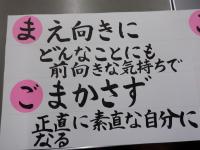 まえ向きに
どんなことにも
前向きな気持ちで
ごまかさず
正直に素直な自分に
なる